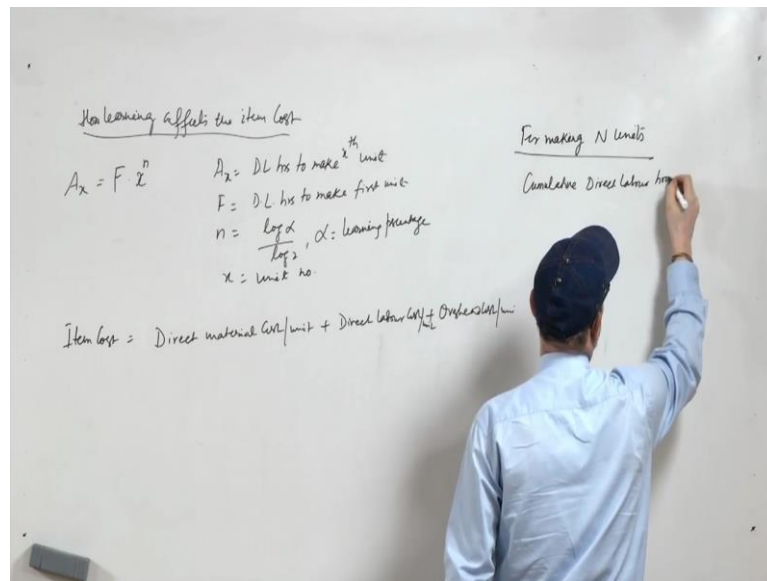 How learning affects the item Cost
Aₓ = F · xⁿ
Aₓ = DL hrs to make xᵗʰ unit
F = D.L. hrs to make first unit
n = log α / log 2 , α = learning percentage
x = unit no.
Item Cost = Direct material Cost/unit + Direct labour Cost/unit + Overhead Cost/uni
For making N Units
Cumulative Direct Labour hou